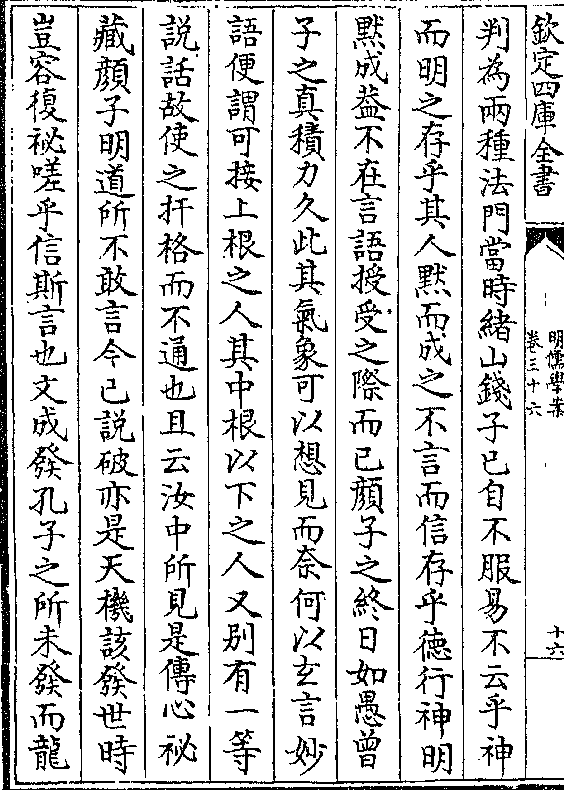 欽定四庫全書
明儒學案
卷三十六
十六
判為兩種法門當時緒山錢子已自不服易不云乎神
而明之存乎其人黙而成之不言而信存乎德行神明
黙成葢不在言語授受之際而已顔子之終日如愚曾
子之真積力久此其氣象可以想見而奈何以𤣥言妙
語便謂可接上根之人其中根以下之人又别有一等
説話故使之扞格而不通也且云汝中所見是傳心祕
藏顔子明道所不敢言今已説破亦是天機該發世時
豈容復祕嗟乎信斯言也文成發孔子之所未發而龍